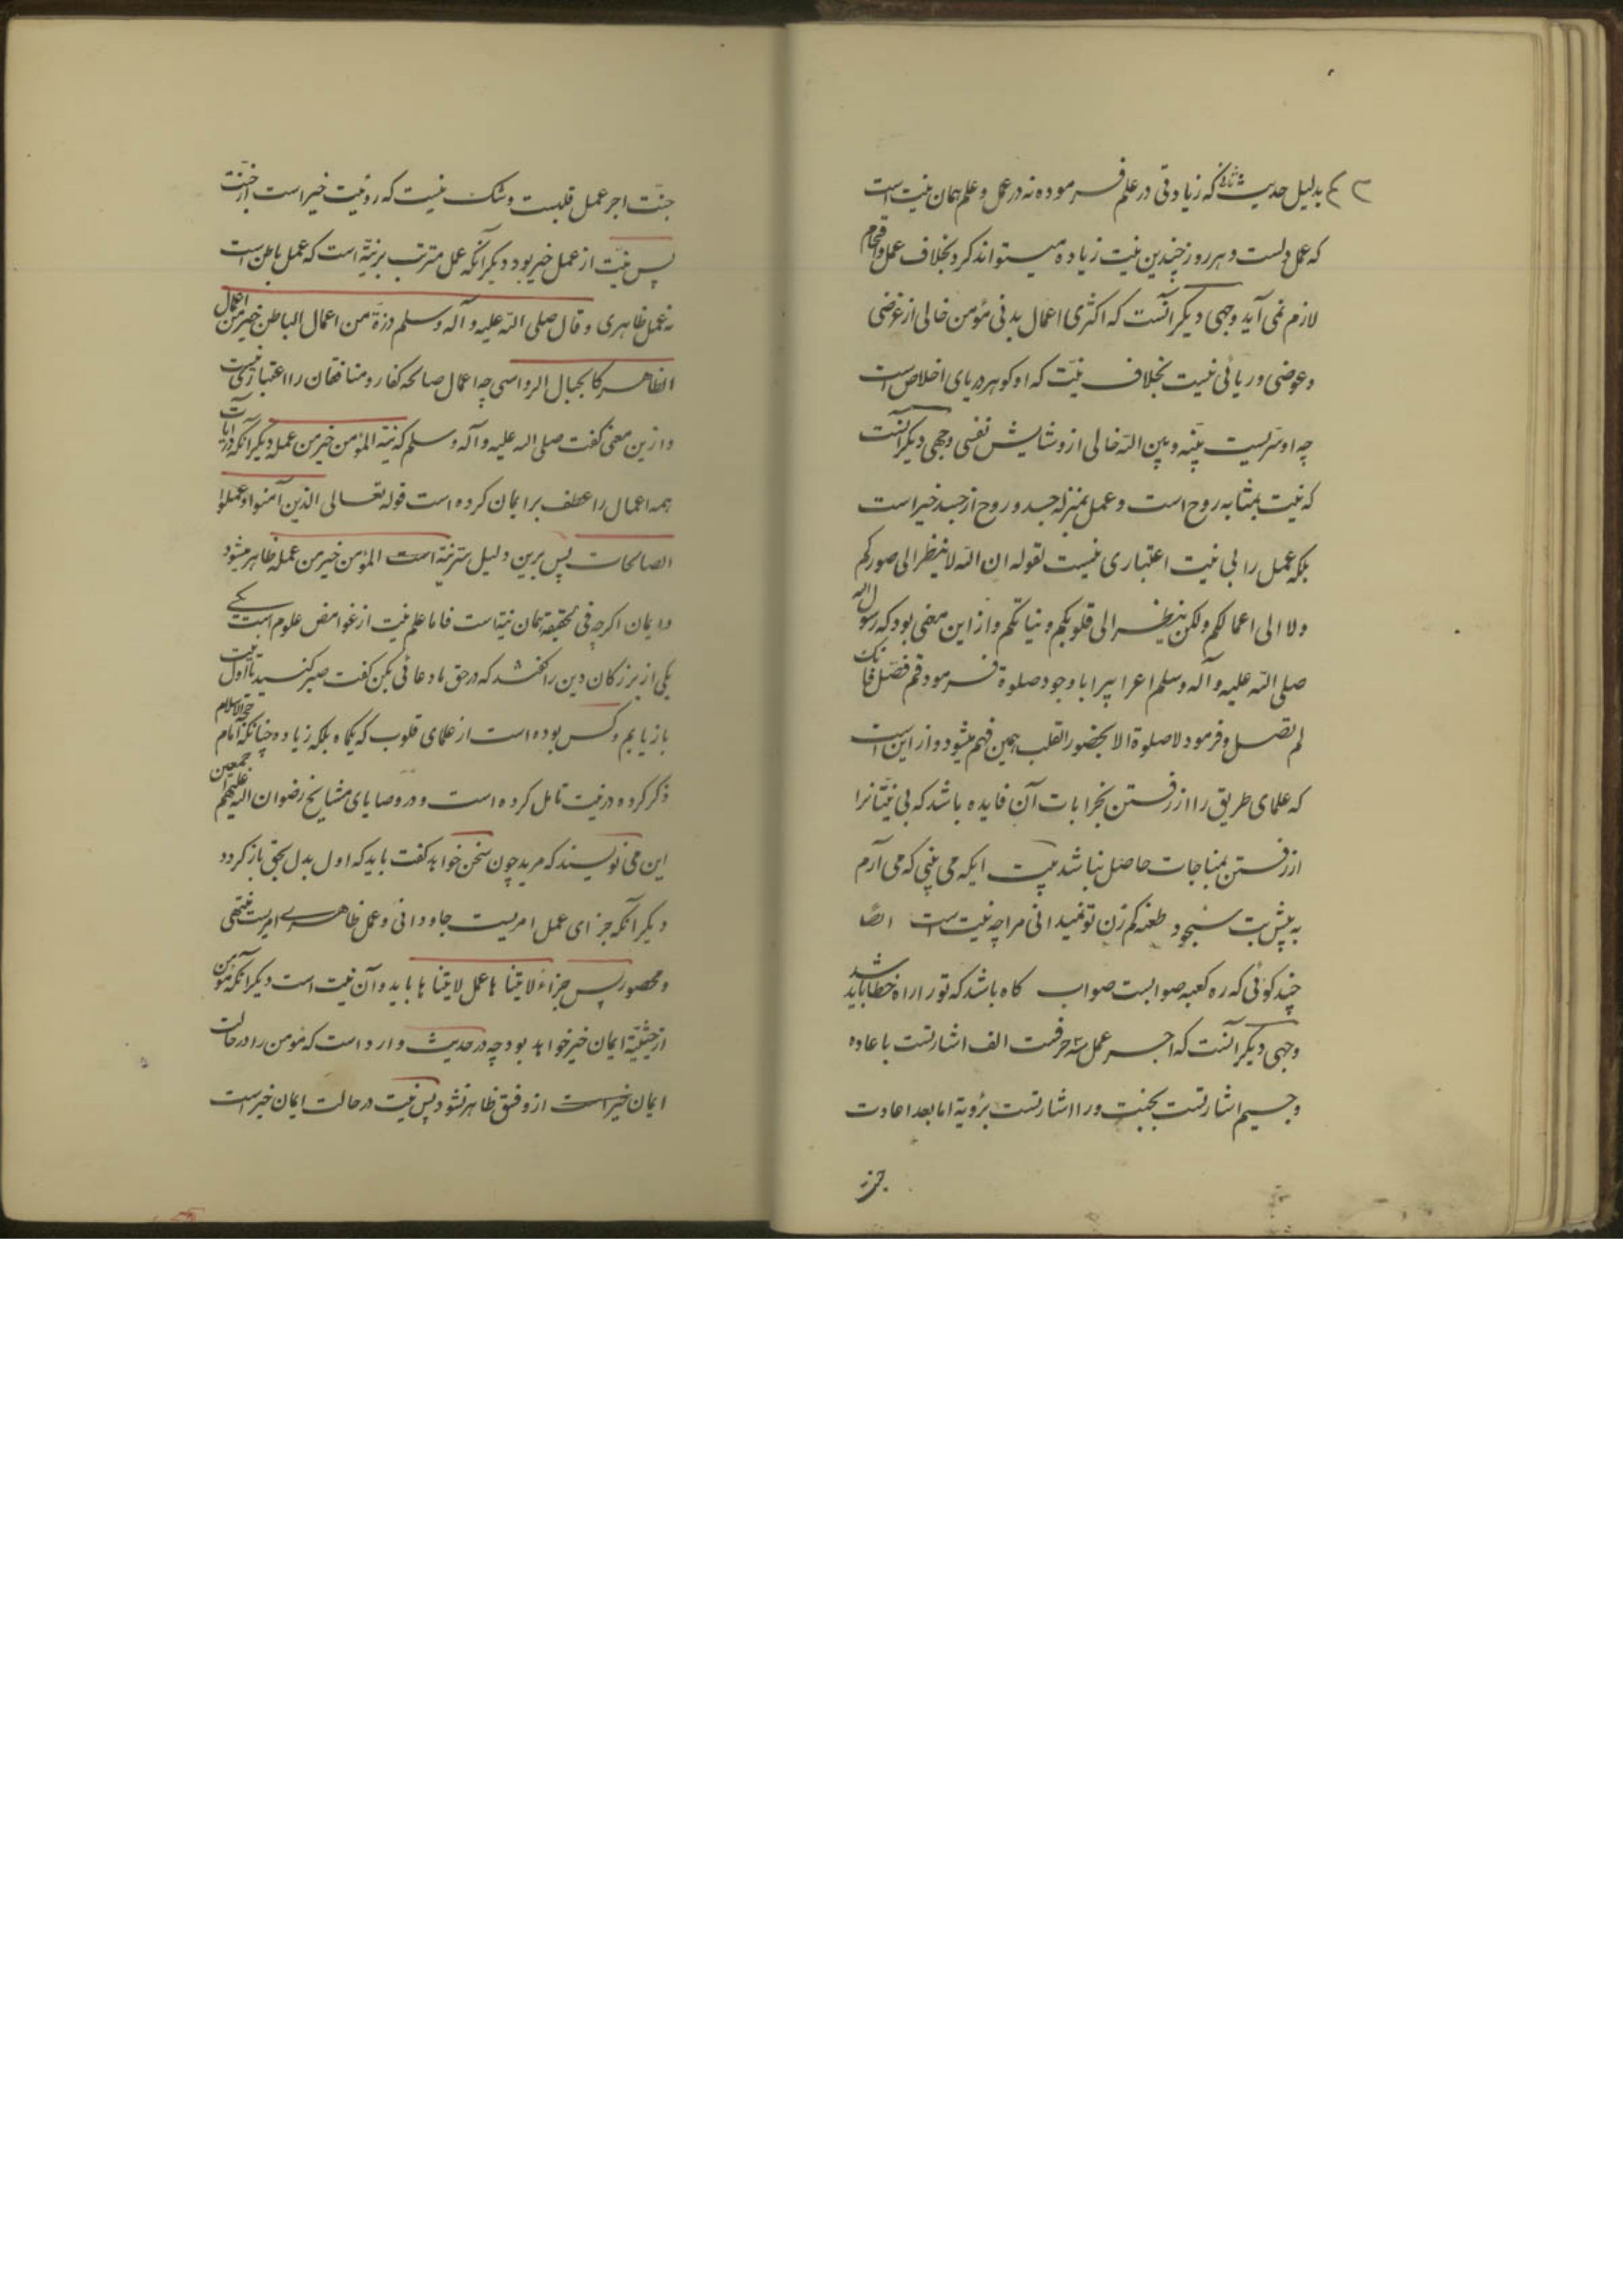 بدلیل حدیث که زیادتی در علم فرموده نه در عمل و علم همان نیت است
که عمل دلست و هر روز چندین نیت زیاده میتواند کرد بخلاف عمل
لازم نمی آید وجهی دیگر آنست که اکثری اعمال بدنی مؤمن خالی از غرضی
و عوضی و ریائی نیست بخلاف نیّت که او کوهر دریای اخلاص است
چه او سریست بینه و بین اللّه خالی از و شایش نفسی وجهی دیگر آنست
که نیت بمثابه روح است و عمل بمنزله جسد و روح از جسد خیر است
بلکه عمل را بی نیت اعتباری نیست لقوله ان اللّه لا ینظر الی صورکم
ولا الی اعمالکم ولکن ینظر الی قلوبکم و نیاتکم و از این معنی بود که رسول الله
صلی اللّه علیه و آله وسلم اعرابیرا با وجود صلوة فرمود قم فصّل فانک
لم تصل و فرمود لا صلوة الا بحضور القلب همین فهم میشود و از این است
که علمای طریق را از رفتن بخرابات آن فایده باشد که بی نیّتانرا
از رفتن بمناجات حاصل نباشد بیت ایکه می بینی که می آرم
به پیش بت سجود طعنه کم زن تو نمیدانی مرا چه نیت است ایضا
چند کوئی که ره کعبه صوابست صواب کاه باشد که تو را راه خطا باید شد
وجهی دیگر آنست که اجر عمل سه حرفست الف اشارتست باعاده
و جیم اشارتست بجنت و را اشارتست برؤیة اما بعد اعادت
جنة
جنّت اجر عمل قلبست و شک نیست که رؤیت خیر است از جنّت
پس نیّت از عمل خیر بود دیگر آنکه عمل مترتب بر نیّة است که عمل باطن است
نه عمل ظاهری و قال صلی اللّه علیه و آله وسلم ذرة من اعمال الباطن خیر من اعمال
الظاهر کالجبال الرواسی چه اعمال صالحه کفار و منافقان را اعتباری نیست
و ازین معنی کفت صلی الله علیه و آله وسلم که نیة المؤمن خیر من عمله دیگر آنکه در آیات
همه اعمال را عطف بر ایمان کرده است قوله تعالی الذین آمنوا و عملوا
الصالحات پس برین دلیل سر نیّة است المؤمن خیر من عمله ظاهر میشود
و ایمان اکرچه فی تحقیقه همان نیّة است فاما علم نیت از غوامض علوم است
یکی از بزرکان دین را کفتند که در حق ما دعائی بکن کفت صبر کنید تا اول نیت
باز یابم و کس بوده است از علمای قلوب که یکماه بلکه زیاده چنانکه امام حجة الاسلام
ذکر کرده در نیت تامل کرده است و در وصایای مشایخ رضوان اللّه علیهم اجمعین
این می نویسند که مرید چون سخن خواهد کفت باید که اول بدل بحق باز کردد
دیگر آنکه جزای عمل امریست جاودانی و عمل ظاهری امریست منتهی
و محصور پس جزاء لایتناها عمل لایتناها باید و آن نیت است دیگر آنکه مؤمن
از حیثیّة ایمان خیر خواهد بود چه در حدیث وارد است که مؤمن را در حالت
ایمان خیر است از و فسق ظاهر نشود پس نیت در حالت ایمان خیر است